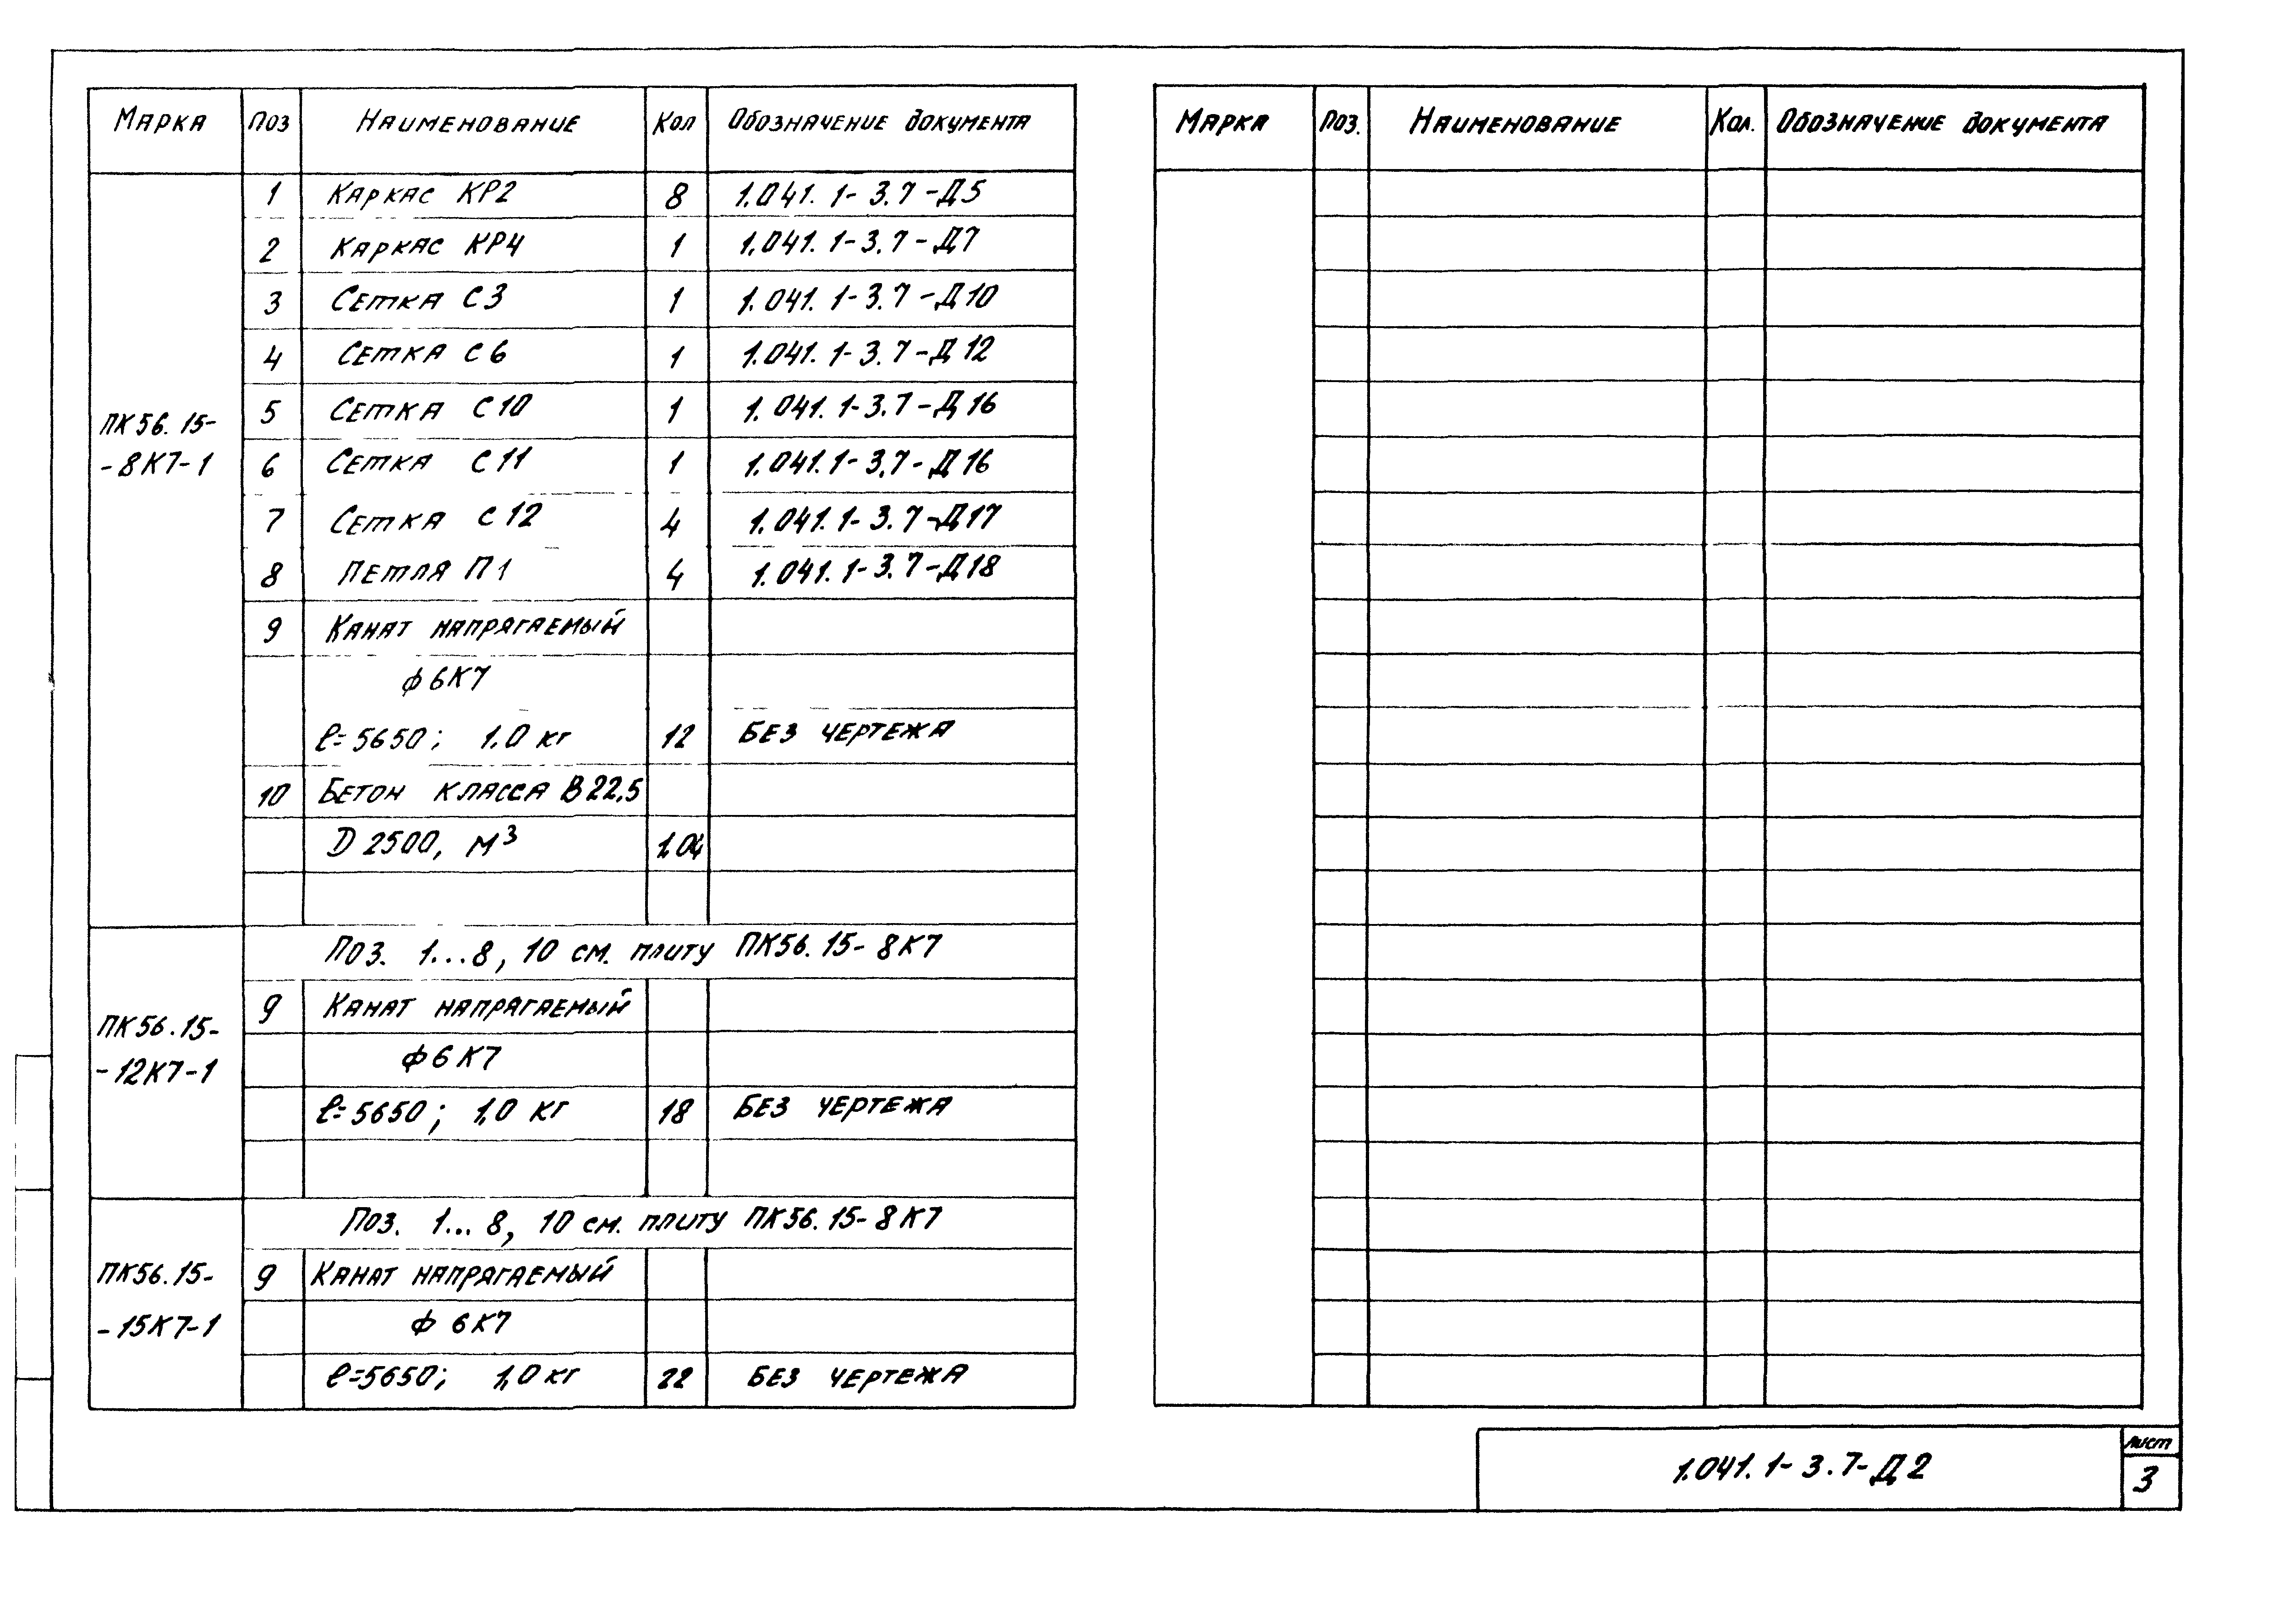 Марка Поз Наименование Кол Обозначение документа
1 Каркас КР2 8 1.041.1-3.7-Д5
2 Каркас КР4 1 1.041.1-3.7-Д7
3 Сетка С3 1 1.041.1-3.7-Д10
4 Сетка С6 1 1.041.1-3.7-Д12
ПК56.15-
-8К7-1
5 Сетка С10 1 1.041.1-3.7-Д16
6 Сетка С11 1 1.041.1-3.7-Д16
7 Сетка С12 4 1.041.1-3.7-Д17
8 Петля П1 4 1.041.1-3.7-Д18
9 Канат напрягаемый
ф6К7
ℓ=5650; 1,0 кг 12 Без чертежа
10 Бетон класса В22,5
D 2500, м³ 1.04
Поз. 1...8, 10 см. плиту ПК56.15-8К7
ПК56.15-
-12К7-1
9 Канат напрягаемый
ф6К7
ℓ=5650; 1,0 кг 18 Без чертежа
Поз. 1...8, 10 см. плиту ПК56.15-8К7
ПК56.15-
-15К7-1
9 Канат напрягаемый
ф 6К7
ℓ=5650; 1,0 кг 22 Без чертежа
Марка Поз. Наименование Кол. Обозначение документа
1.041.1-3.7-Д2
Лист
3